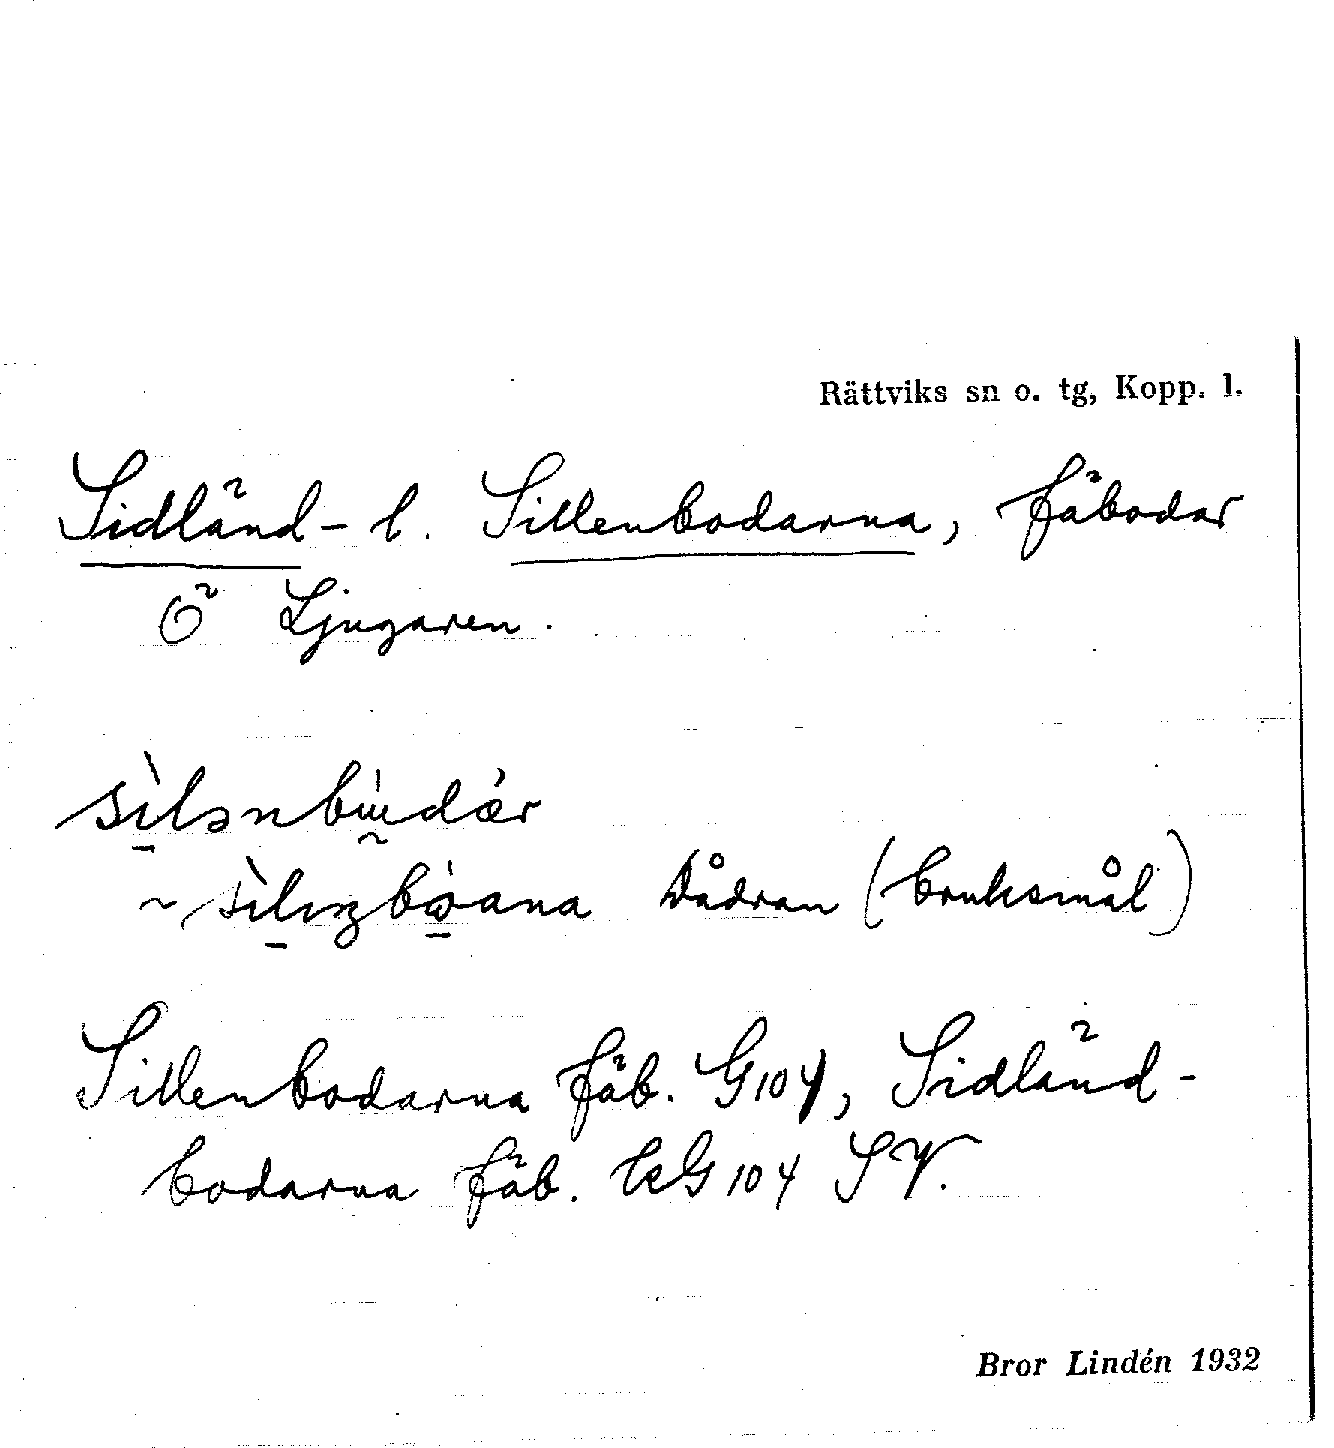 Rättviks sn o. tg, Kopp. l.
Sidländ- l. Sillenbodarna, fäbodar
Ö Ljugaren.
Dådran (bruksmål)
Sillenbodarna fäb. G104, Sidländ-
bodarna fäb. G104 SV.
Bror Lindén 1932